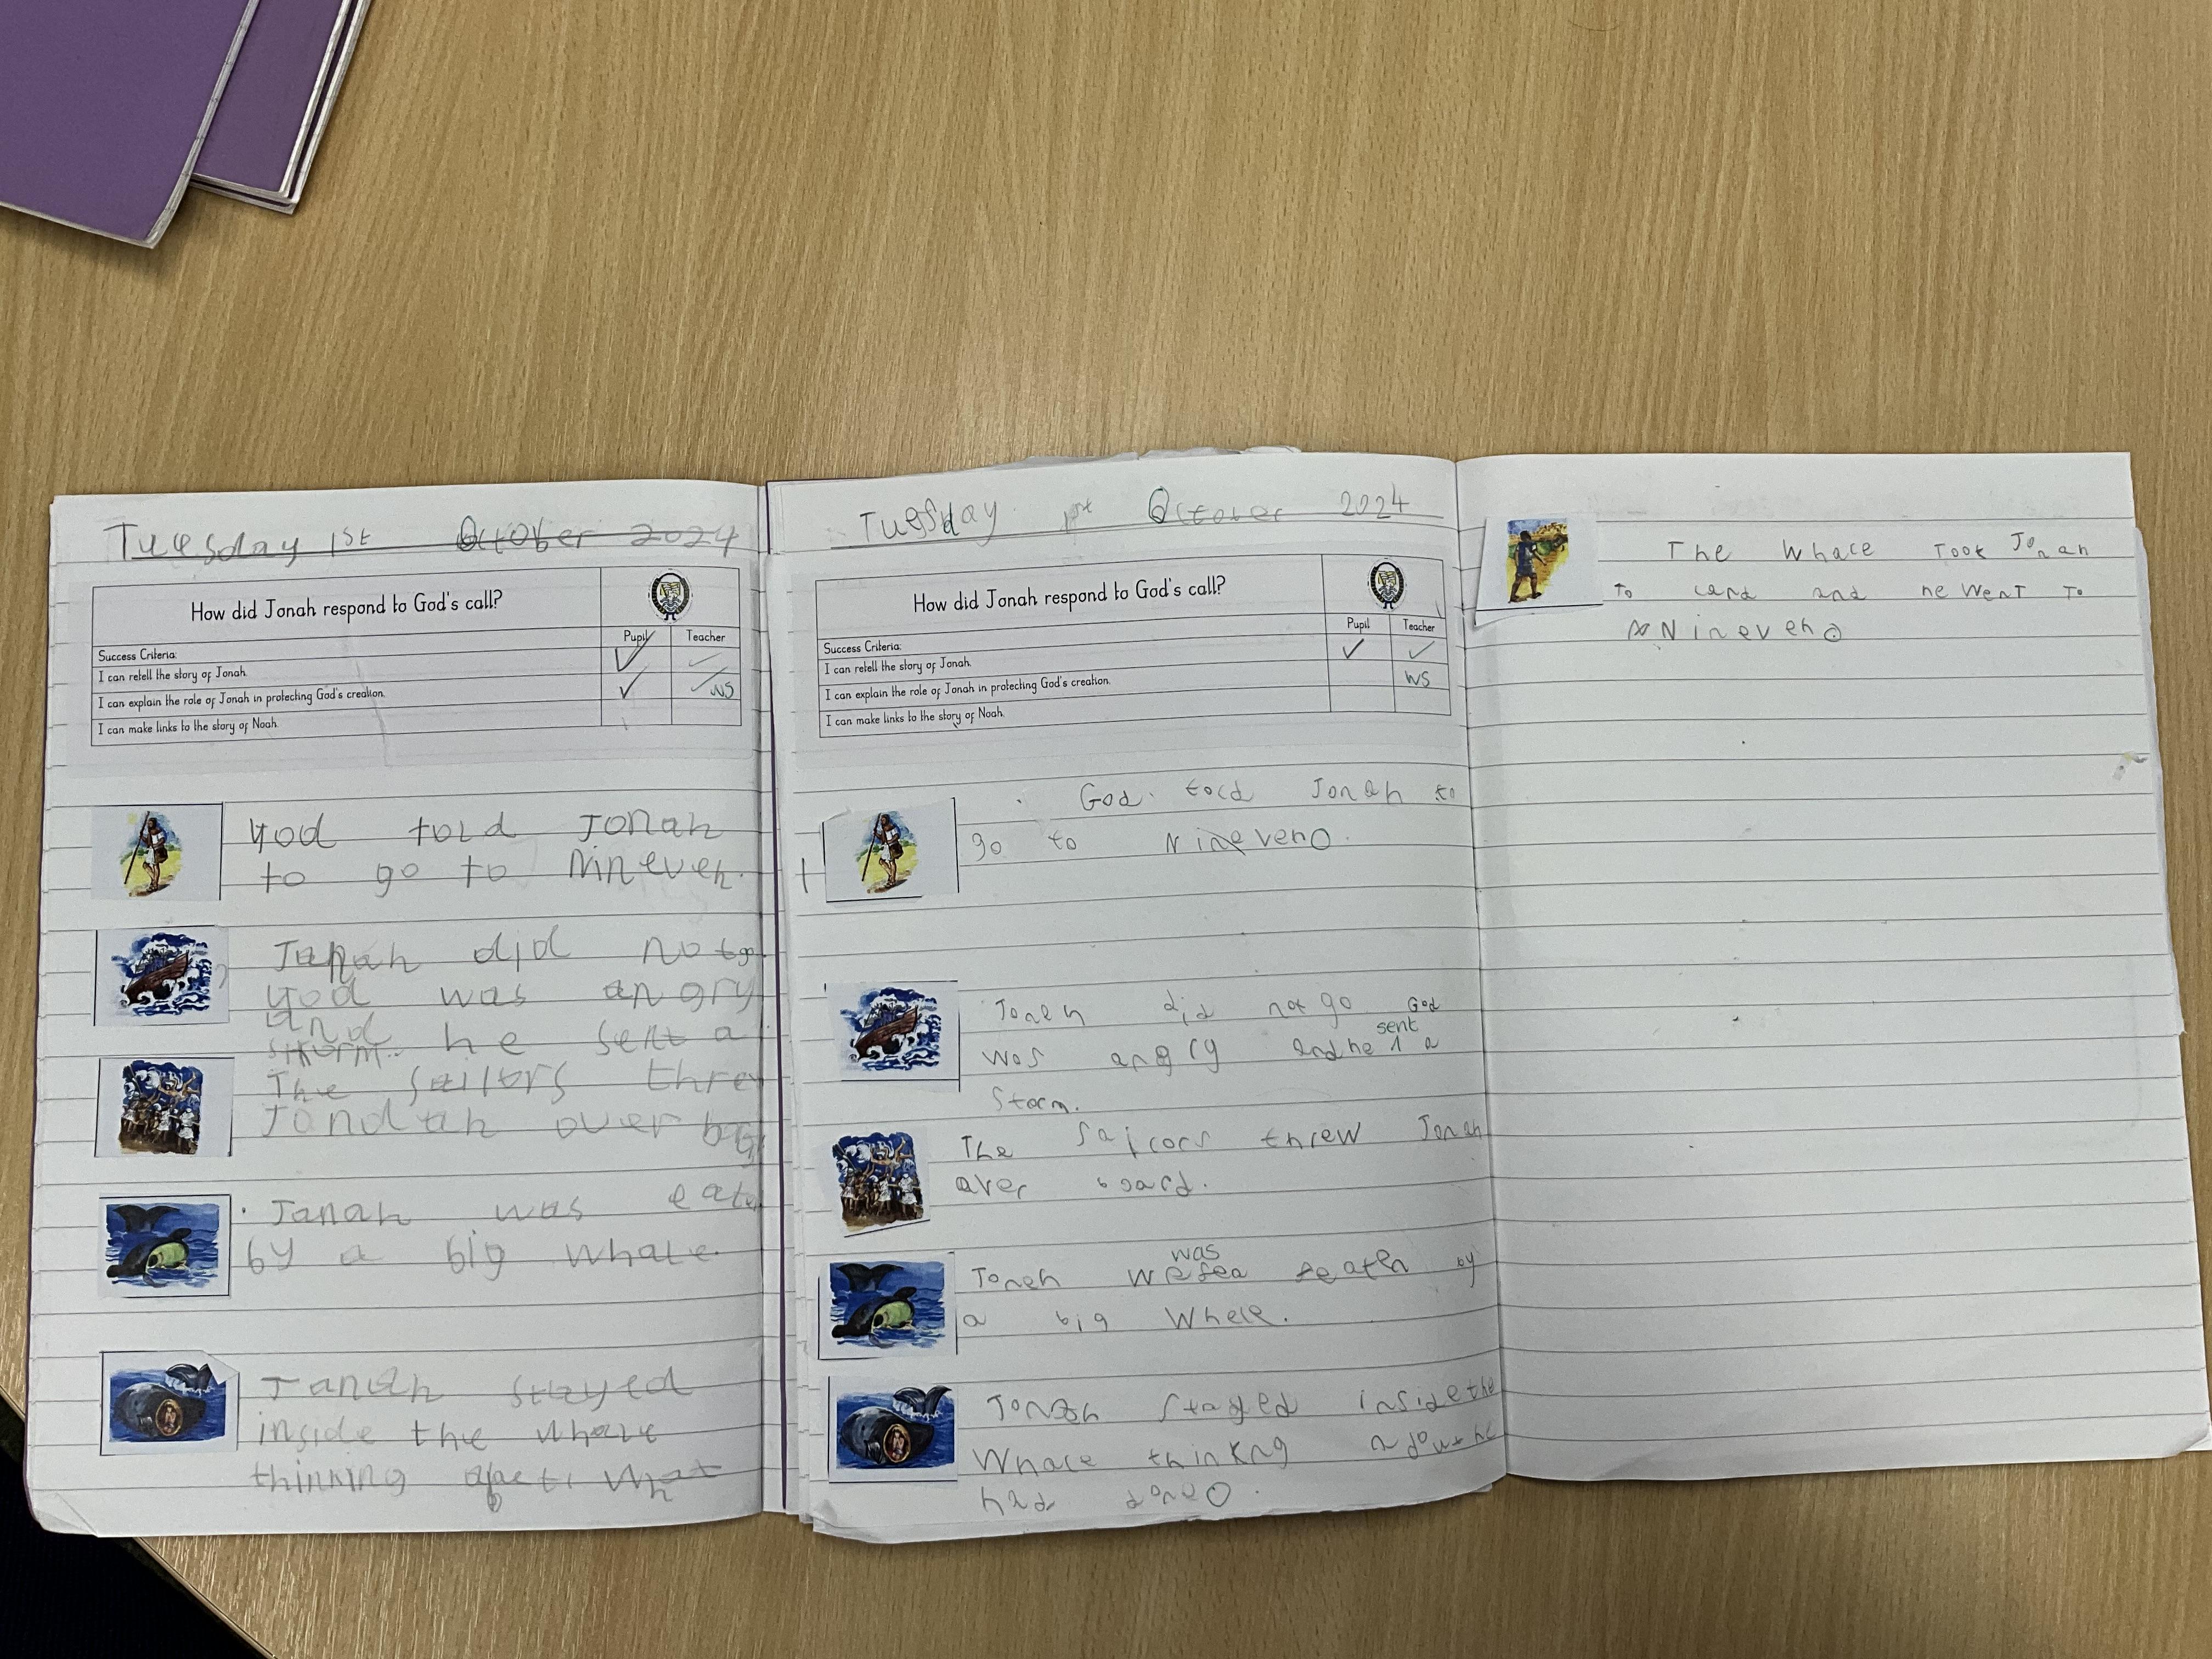 Tuesday 1st October 2024
How did Jonah respond to God's call?
Pupil Teacher
Success Criteria:
I can retell the story of Jonah.
I can explain the role of Jonah in protecting God's creation.
WS
I can make links to the story of Noah.
God told Jonah
to go to Nineveh.
Jonah did not go.
God was angry
and
storm. he sent a
The sailors threw
Jondah over
Jonah was
by a big whale.
Jonah stayed
inside the whale
thinking what
Tuesday 1st October 2024
How did Jonah respond to God's call?
Pupil Teacher
Success Criteria:
I can retell the story of Jonah.
I can explain the role of Jonah in protecting God's creation.
WS
I can make links to the story of Noah.
God. told Jonah to
go to Nineveh.
Jonah did not go God
sent
was angry and he a
storm.
The sailors threw Jonah
over board.
was
Jonah eaten by
a big whale.
Jonah stayed inside the
Whale thinkng
had done.
The Whale Took Jonah
To land and he Went To
Nineveh